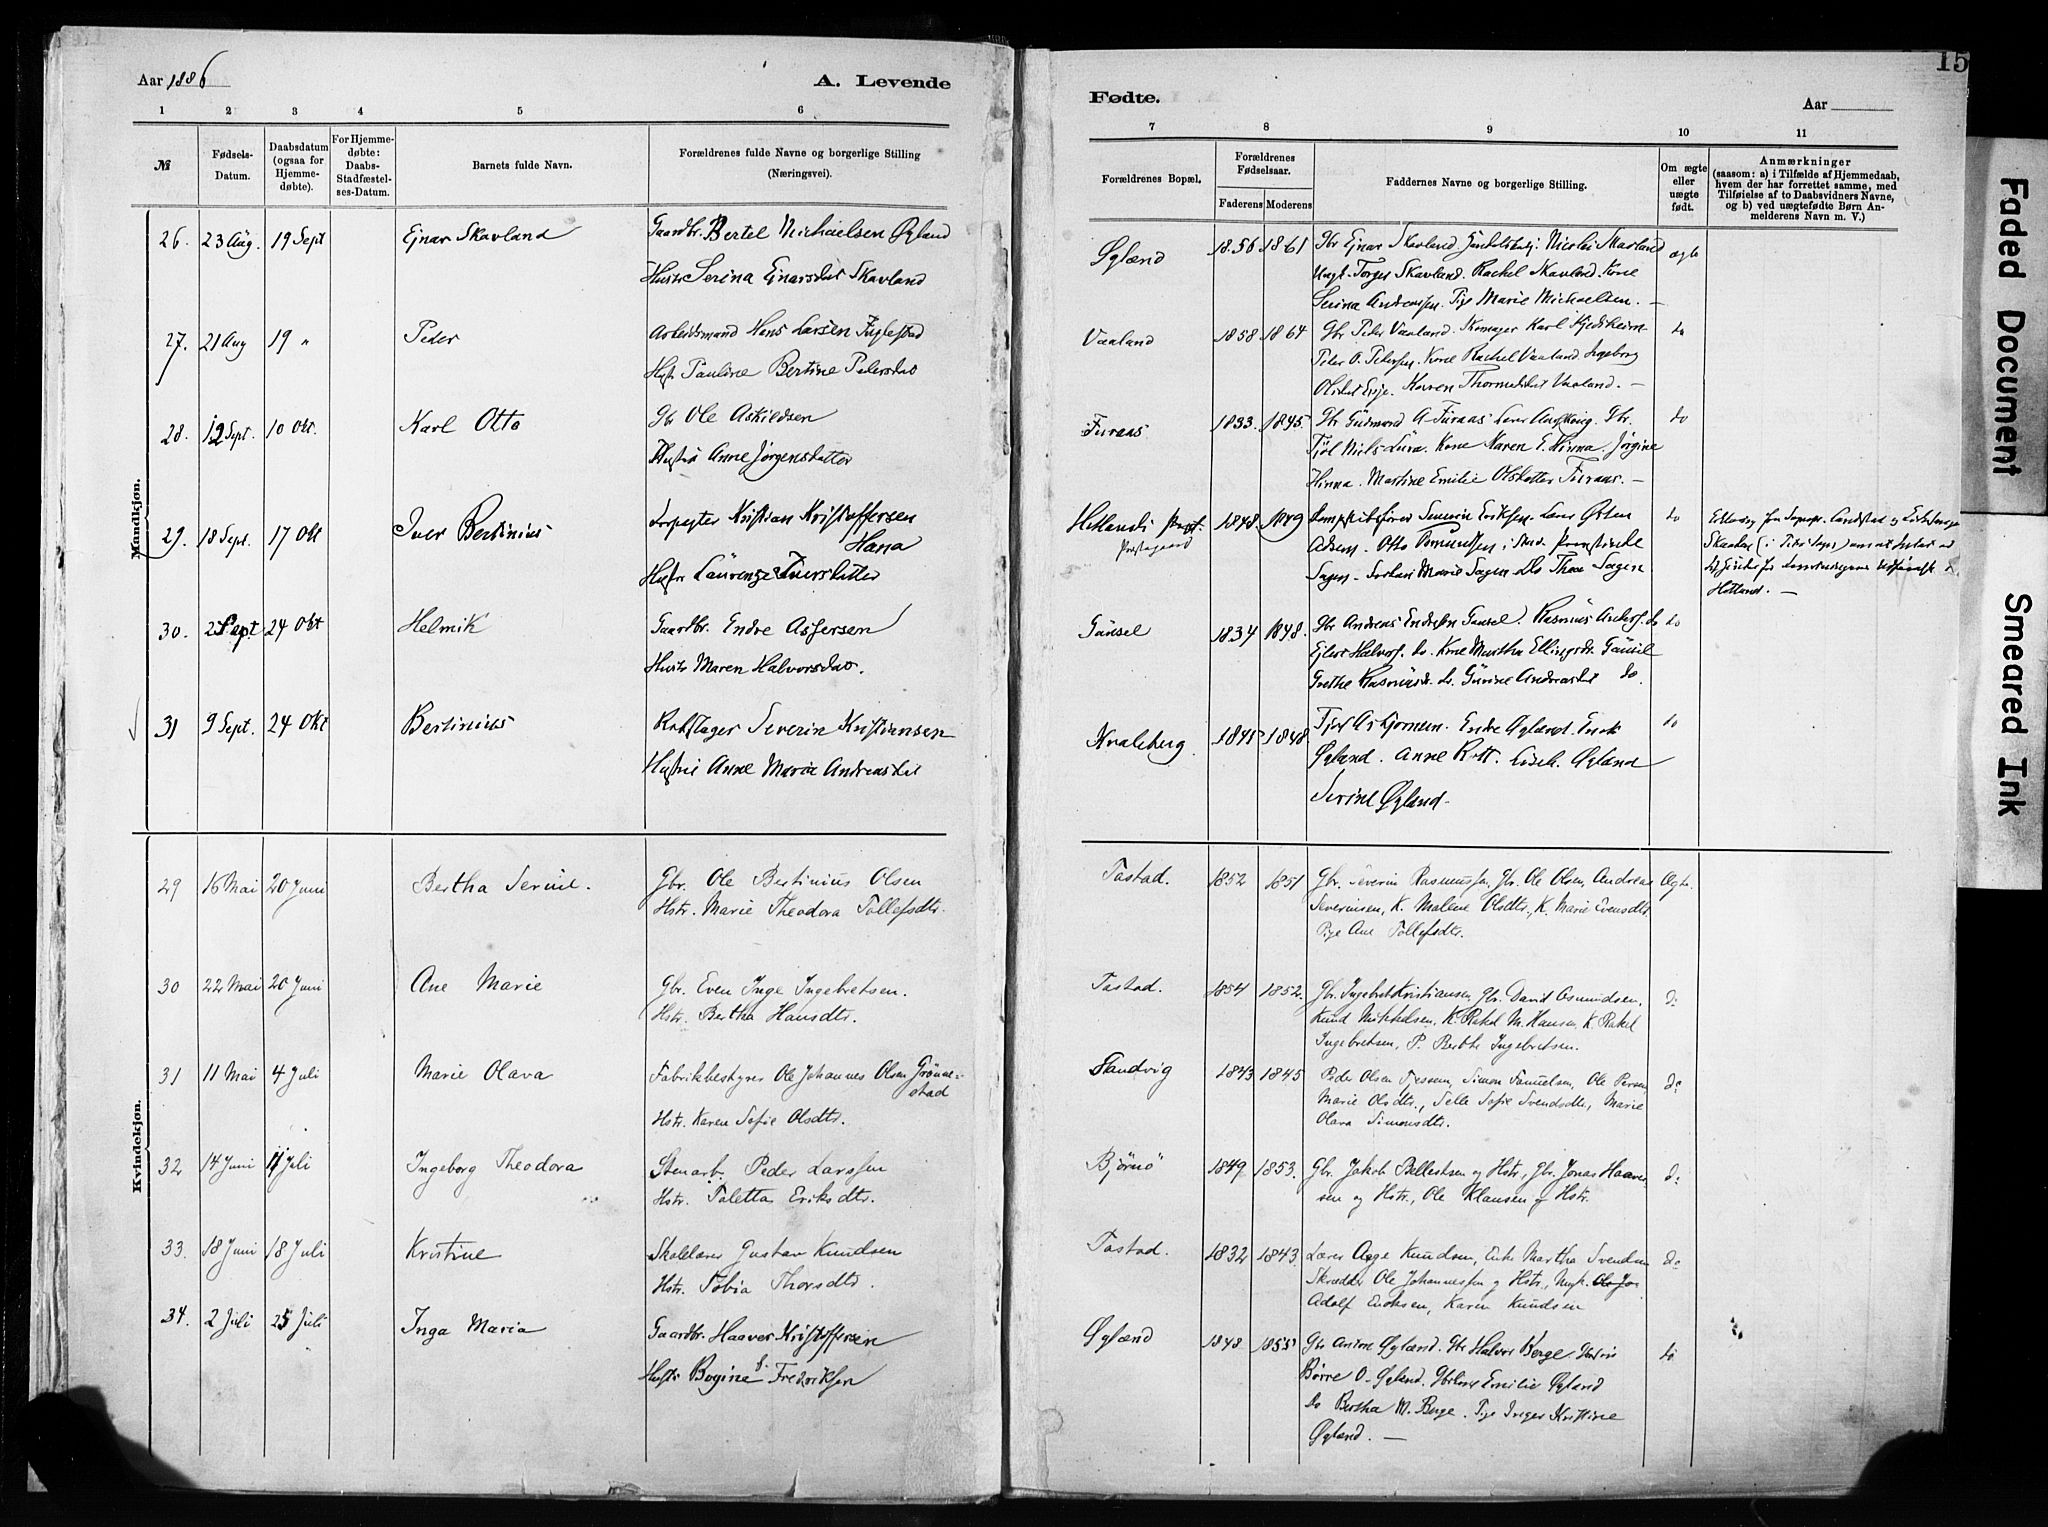 Aar 1886
A. Levende
1 2 3 4 5 6
№
Fødsels-
Datum.
Daabsdatum
(ogsaa for
Hjemme-
døbte).
For Hjemme-
døbte:
Daabs-
Stadfæstel-
ses-Datum.
Barnets fulde Navn.
Forældrenes fulde Navne og borgerlige Stilling
(Næringsvei).
Mandkjøn.
26. 23 Aug. 19 Sept Ejnar Skavland Gaardbr. Bertel Michaelsen Øgland
Hustr Serina Ejnarsdat Skavland
27. 21 Aug 19 " Peder Arbeidsmand Hans Larsen Fuglestad
Hustr Pauline Bertine Pedersdat
28. 12 Sept. 10 Okt. Karl Otto Gbr Ole Askildsen
Hustru Anne Jørgensdatter
29. 18 Sept. 17 Okt Iver Bertinius Forpagter Kristian Kristoffersen
Hana
Hustr Laurenze Iversdatter
30. Sept 24 Okt Helmik Gaardbr. Endre Asgersen
Hustr Maren Halvorsdat.
31 9 Sept. 24 Okt Bertinius Rebslager Severin Kristiansen
Hustru Anne Maria Andreasdat
Kvindekjøn.
29 16 Mai 20 Juni Bertha Serine. Gbr. Ole Bertinius Olsen
Hstr. Marie Theodora Tollefsdtr.
30 22 Mai 20 Juni Ane Marie Gbr. Even Inge Ingebretsen.
Hstr. Bertha Hansdtr.
31 11 Mai 4 Juli Marie Olava Fabrikbestyrer Ole Johannes Olsen Grønne-
stad
Hstr. Karen Sofie Olsdtr.
32 14 Juni 11 Juli Ingeborg Theodora Stenarb. Peder Larssen
Hstr. Taletta Eriksdtr.
33. 18 Juni 18 Juli Kristine Skolelærer Gustav Knudsen
Hstr. Tobia Thorsdtr.
34. 2 Juli 25 Juli Inga Maria Gaardbr. Haaver Kristoffersen
Hustr Bogine f. Fredriksen
Fødte.
Aar
15
7 8 9 10 11
Forældrenes Bopæl.
Forældrenes
Fødselsaar.
Faderens Moderens
Faddernes Navne og borgerlige Stilling.
Om ægte
eller
uægte
født.
Anmærkninger
(saasom: a) i Tilfælde af Hjemmedaab,
hvem der har forrettet samme, med
Tilføielse af to Daabsvidners Navne,
og b) ved uægtefødte Børn An-
melderens Navn m. V.)
Øglænd 1856 1861 Gbr Ejnar Skavland. Nicolai Skavland ægte
Ungk. Torger Skavland. Rachel Skavland. Kone
Serina Andreassen. Pige Marie Michaelsen. —
Vaaland 1858 1864 Gbr Peder Vaaland. Skomager Karl Kjedsheim do
Peter O. Pedersen. Kone Rachel Vaaland. Ingeborg
Karen Thormodsdat Vaaland. —
Furaas 1833. 1845. Gbr Gudmund A. Furaas. Gbr. do
Niels Lura. Kone Maren E. Hinna. Jørgine
Hinna. Martine Emilie Olsdatter Furaas. —
Hetlands Præstegaard 1848. 1849 Severin Eriksen. do
Otto Osmundsen
Marie Sagen. Do Thea Sagen
Hetland. —
Gausel 1834 1848. Gbr Andreas Endresen Gausel. Rasmus do
Ejler Halvors. do. Kone Martha Ellingsdtr Gausel
Grethe Rasmusdtr. do. Gurine Andreasdat do.
Kvaleberg. 1848. Endre Øgland. do
Øgland. Anne Lisab. Øgland
Serine Øgland.
Tastad. 1852 1851 Gbr. Severin Rasmussen, Gbr. Ole Olsen, Andreas Ægte.
Severinsen, K. Malene Olsdtr., K. Marie Evensdtr.
Pige Ane Tollefsdtr.
Tastad. 1854 1852. Gbr. Ingebret Kristiansen, Gbr. David Osmundsen, do
Knud Mikkelsen, K. Rakel M. Hansen, K. Rakel
Ingebretsen, P. Berthe Ingebretsen.
Sandvig 1843 1845 Peder Olsen Tjessem, Simon Samuelsen, Ole Persen do
Marie Olsdtr., Selle Sofie Svendsdtr., Marie
Olava Simonsdtr.
Bjørnø 1849 1853. Gbr. Jakob Pallesthsen og Hstr., Gbr. Jonas Haaver- do
sen og Hstr., Ole Klausen og Hstr.
Tastad. 1832 1843. Lærer Aage Knudsen, Enke Martha Svendsen do
Skrædder Ole Johannessen og Hstr., Ungk. Ole Jo
Adolf Enoksen, Karen Knudsen
Øglænd 1848 1855 Gbr Anton Øglænd. Gbr Halvor Berge. do
Børre O. Øgland. Emilie Øgland
Do Bertha M. Berge. Pige Inger Kristine
Øglænd. —
Faded Document
Smeared Ink